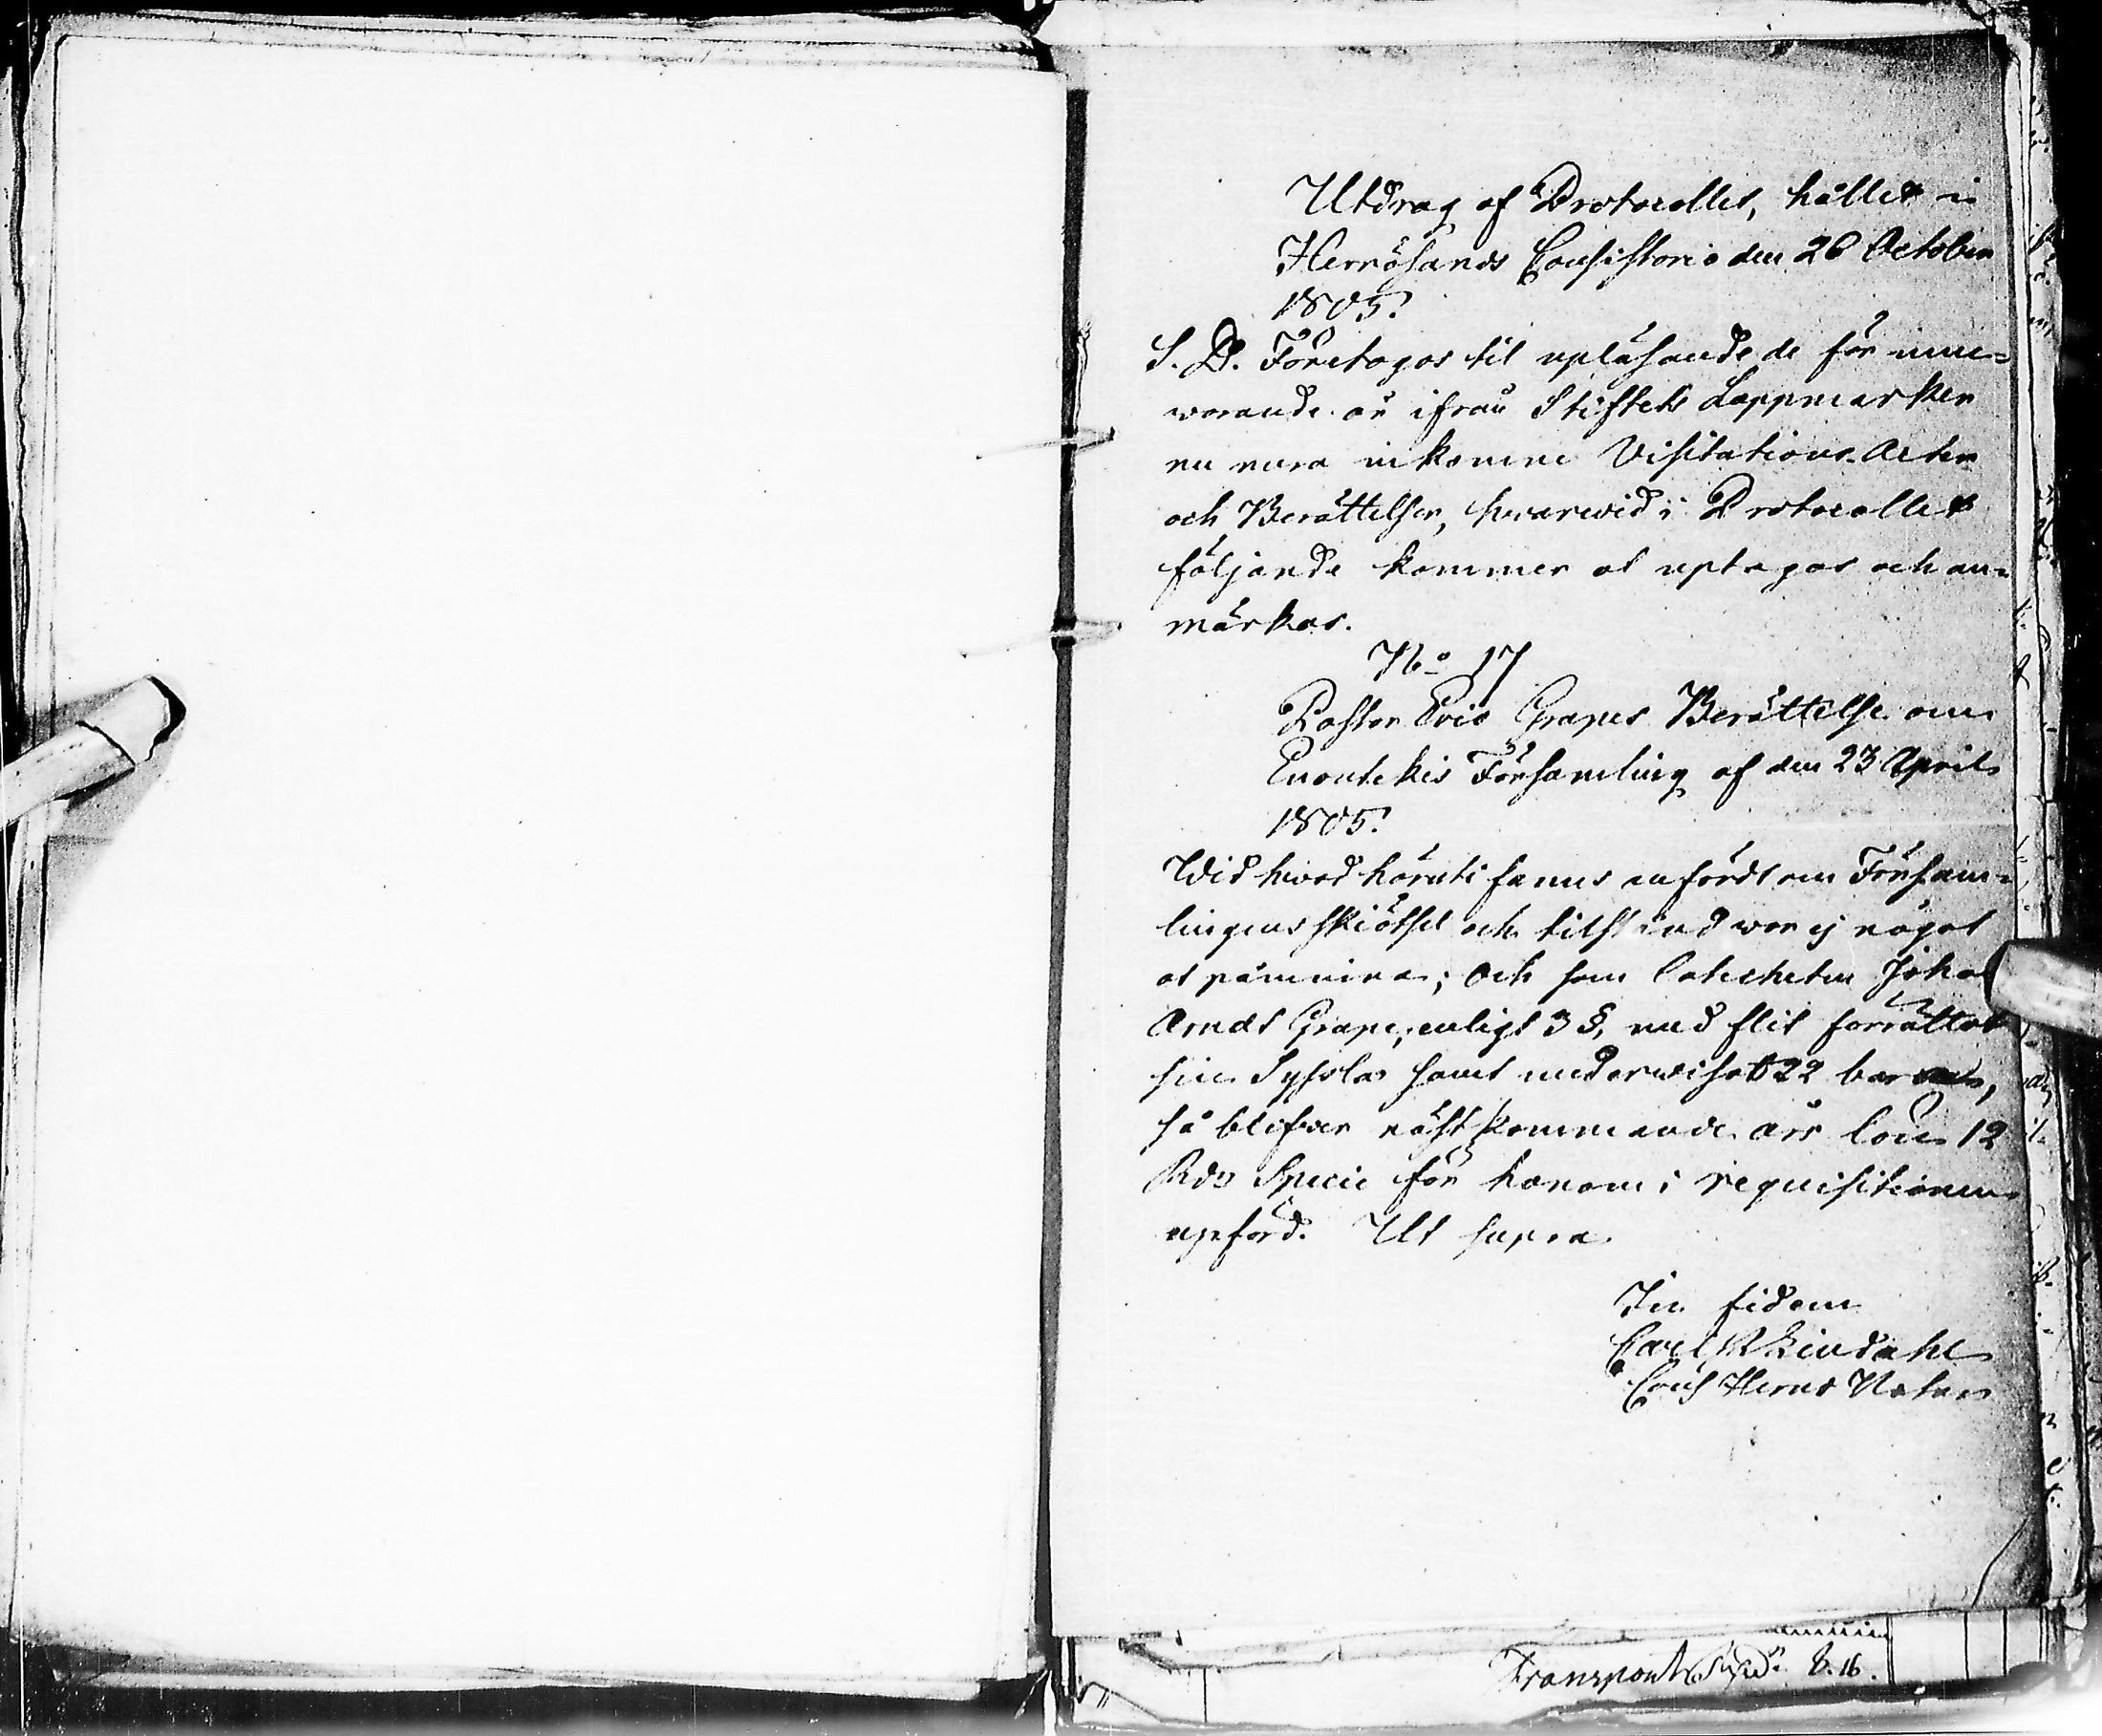 Utdrag af Protocollet, hållet i
Hernösands Consistorio den 26 October
1805.
S. D. Företogos til upläsande de för inne-
warande år ifrån Stiftets Lappmarken
nu mera inkomne Visitations-Acter
och Berättelser, hwarwid i Protocollet
följande kommer at uptagas och an-
märkas.
No 17
Pastor Eric Grapes Berättelse om
Enontekis Församling af den 23 April
1805.
Wid hwad häruti fanns anfördt om Försam-
lingens skiötsel och tilstånd war ej något
at påminna; Och som Catecheten Johan
Arndt Grape, enligt 3 §, med flit förrättat
sin Syssla samt underwisat 22 barn,
så blifwer nästkommande års lön 12
Rds Specie för honom i requisitionen
upförd. Ut supra.
In fidem
Carl Lindahl
Cons Hernös Notar
Transport 8.16.